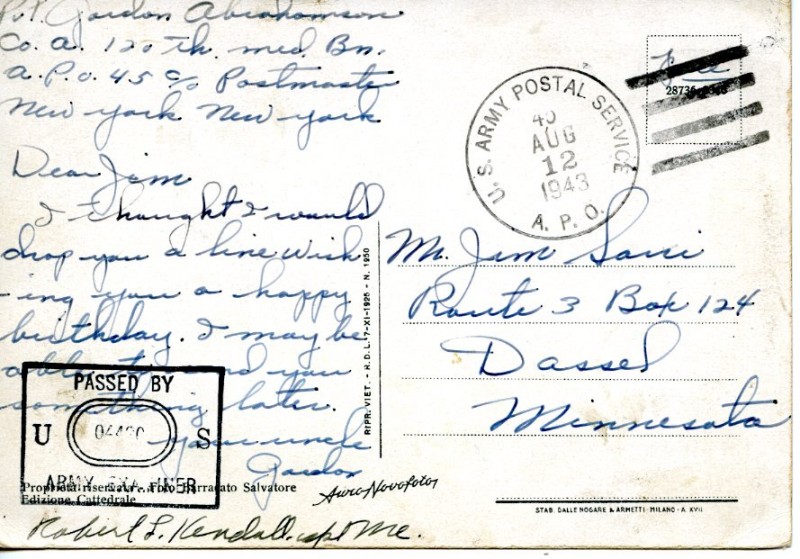 Pvt. Gordon Abrahamson
Co. A. 120th. med. Bn.
A.P.O. 45 c/o Postmaster
New York New York
Dear Jim
I thought I would
drop you a line wish
-ing you a happy
birthday. I may be
able to send you
something later.
your uncle
Gordon
PASSED BY
U S
ARMY EXAMINER
Proprietà riservata - Foto Barracato Salvatore
Edizione Cattedrale
Robert L. Kendall
RIPR. VIET. - R.D.L. 7-XI-1925 - N. 1950
Free
28736
U.S. ARMY POSTAL SERVICE
AUG
12
1943
A.P.O.
Mr. Jim
Route 3 Box 124
Dassel
Minnesota
STAB. DALLE NOGARE & ARMETTI - MILANO - A. XVII